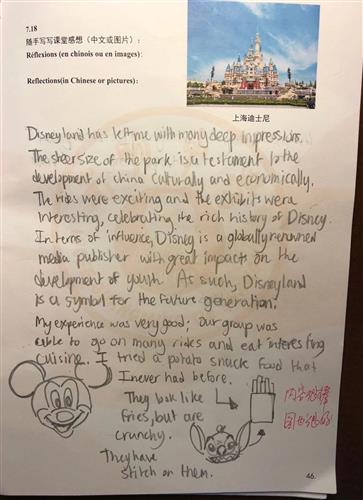 7.18
随手写写课堂感想（中文或图片）：
Réflexions (en chinois ou en images):
Reflections(in Chinese or pictures):
上海迪士尼
Disneyland has left me with many deep inpressions.
The sheer size of the park is a testament to the
development of china culturally and economically.
The rides were exciting and the exhibits were
interesting, celebrating the rich history of Disney.
In terms of influence, Disney is a globally renowned
media publisher with great impacts on the
development of youth. As such, Disneyland
is a symbol for the future generation.
My experience was very good; our group was
able to go on many rides and eat interesting
cuisine. I tried a potato snack food that
I never had before.
They look like
fries, but are
crunchy.
They have
stitch on them.
内容很棒
图也很好
46.